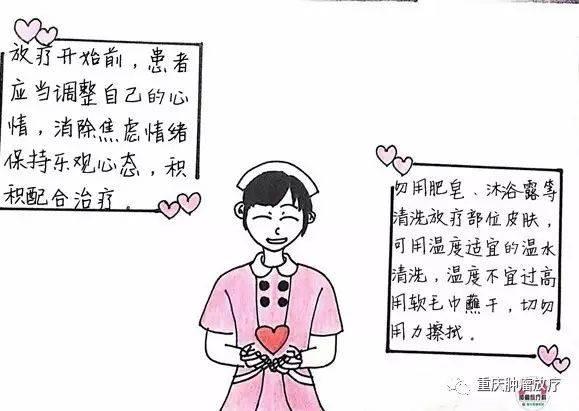 放疗开始前，患者
应当调整自己的心
情，消除焦虑情绪
保持乐观心态，积
积配合治疗。
勿用肥皂、沐浴露等
清洗放疗部位皮肤，
可用温度适宜的温水
清洗，温度不宜过高
用软毛巾蘸干，切勿
用力擦拭。
重庆肿瘤放疗